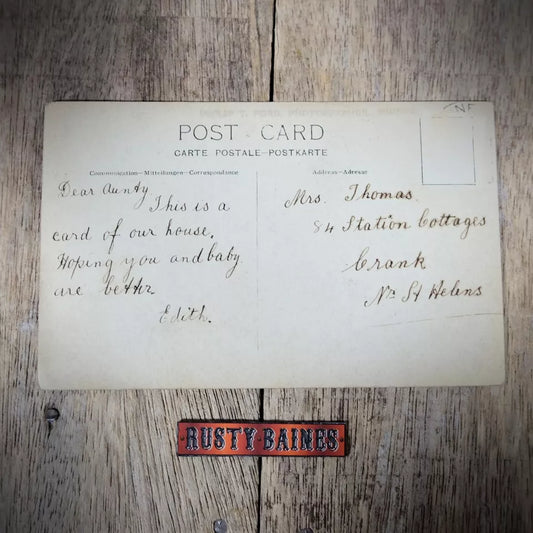 NF
POST CARD
CARTE POSTALE—POSTKARTE
Communication—Mitteilungen—Correspondance
Address—Adresar
Dear Aunty
This is a
card of our house.
Hoping you and baby
are better
Edith.
Mrs. Thomas
84 Station Cottages
Crank
Nr St Helens
RUSTY BAINES